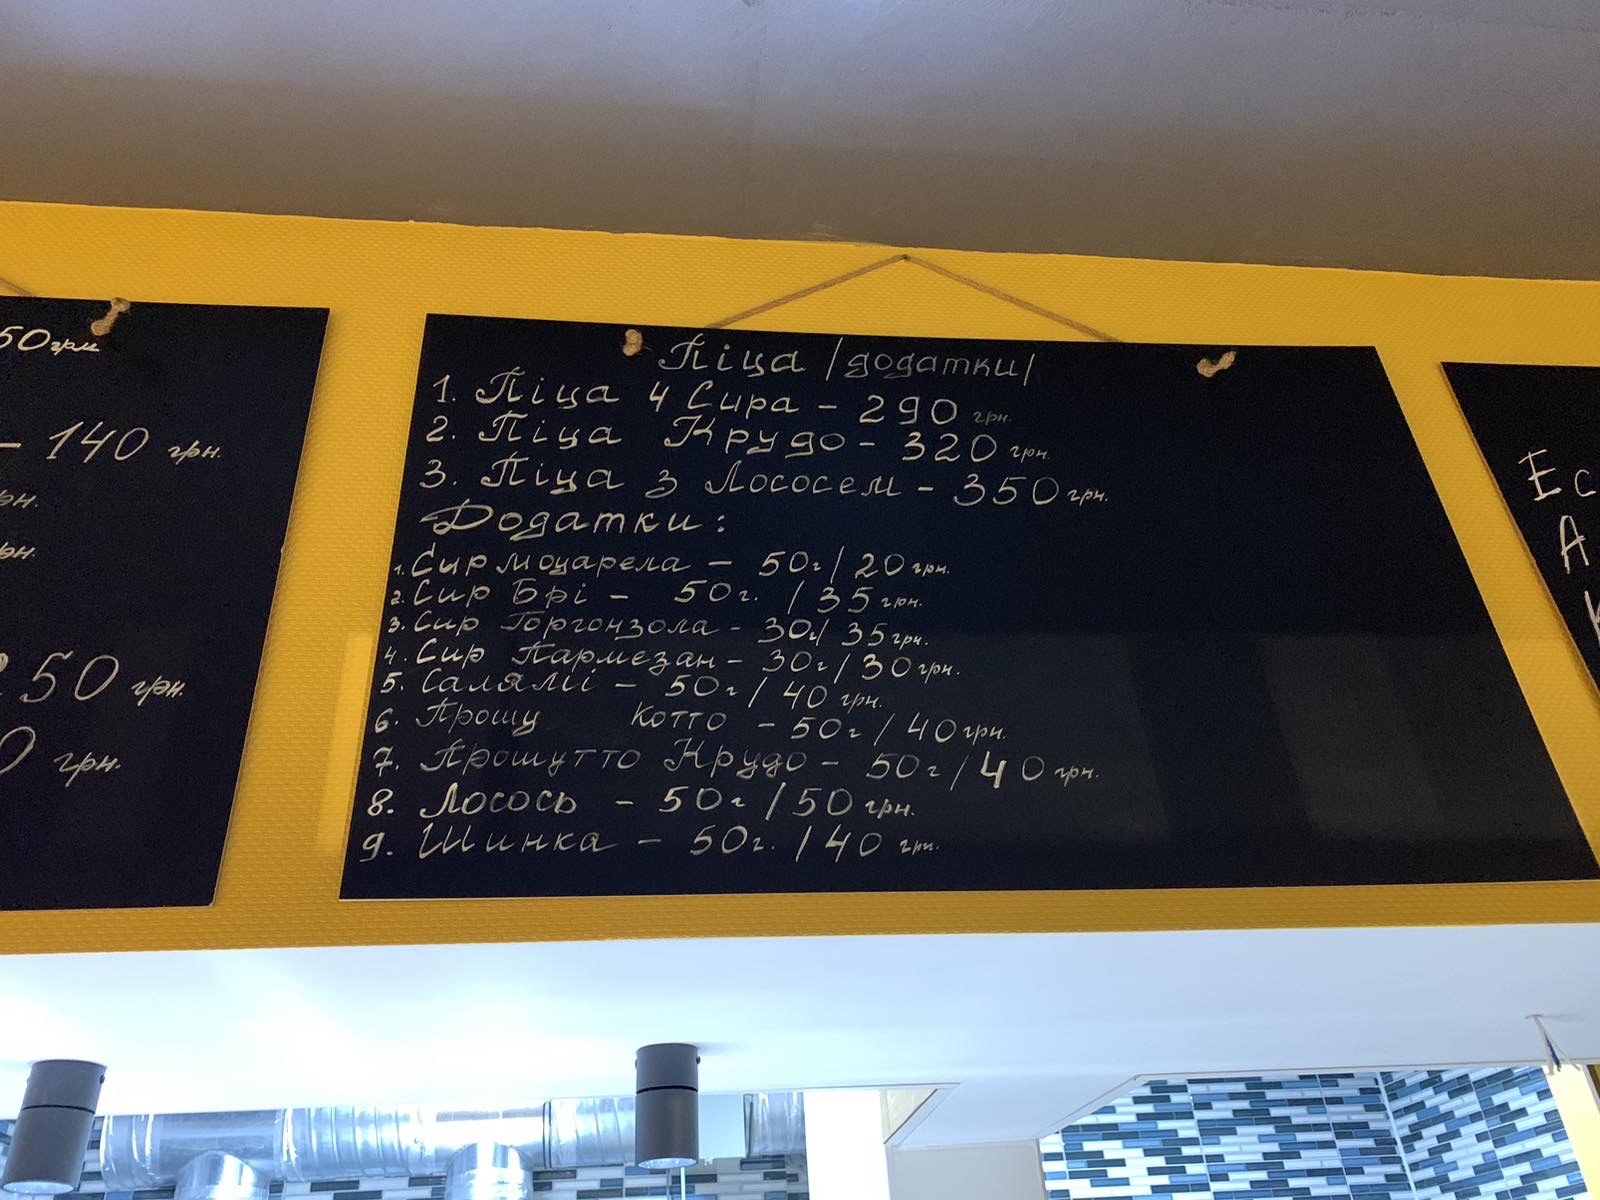 50грм
- 140 грн.
рн.
рн
250 грн.
0 грн.
Піца /додатки/
1. Піца 4 Сира - 290 грн.
2. Піца Крудо - 320 грн.
3. Піца з Лососем - 350 грн.
Додатки:
1. Сыр моцарела - 50г/20 грн.
2. Сир Брі - 50г. /35 грн.
3. Сир Горгонзола - 30г/35грн.
4. Сир Пармезан - 30г/30 грн.
5. Салямі - 50г/40 грн.
6. Прошу котто - 50г/40грн.
7. Прошутто Крудо - 50г/40 грн.
8. Лосось - 50г/50 грн.
9. Шинка - 50г. /40 грн.
Ес
А
К